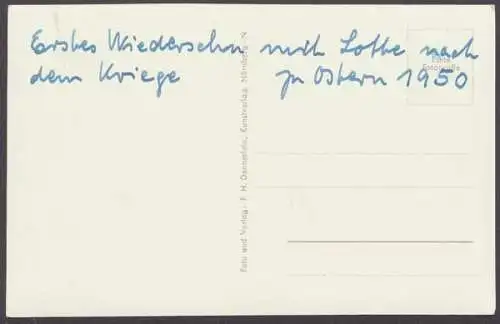 Erstes Wiedersehn mit Lotte nach
dem Kriege zu Ostern 1950
Echte
Fotografie
Foto und Verlag: F. H. Kunstverlag, Nürnberg - N